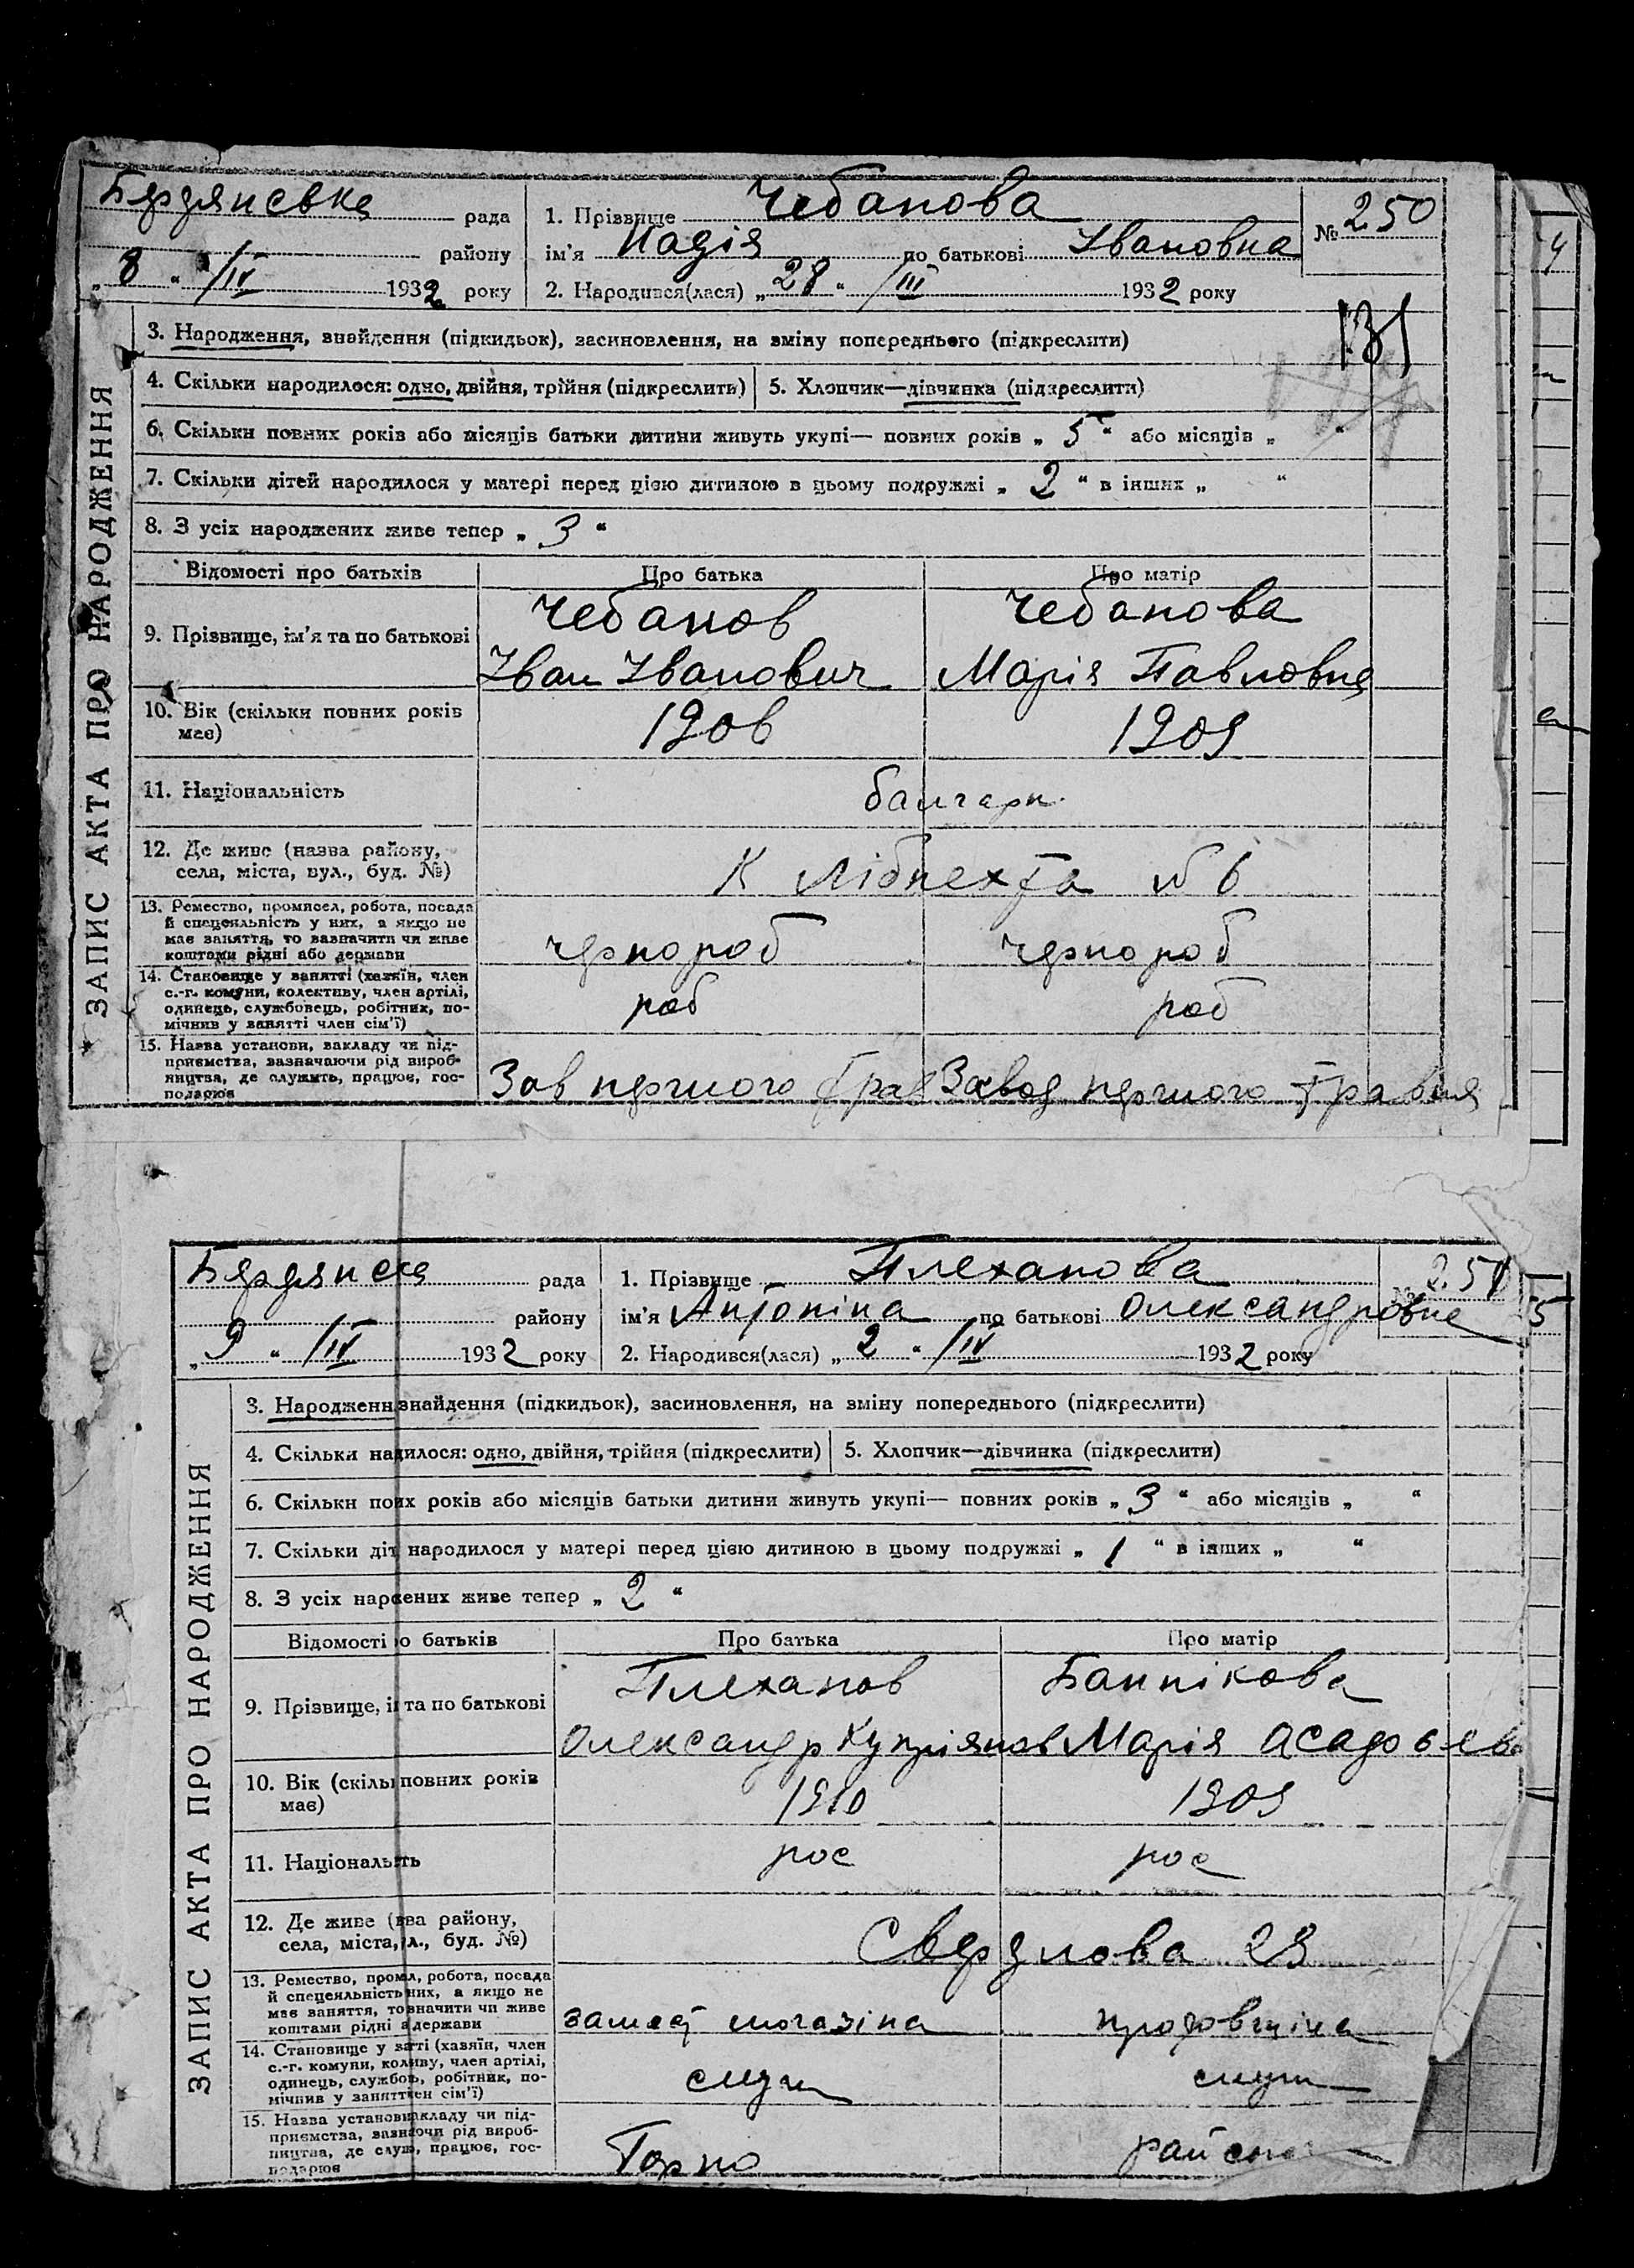 Бердянська рада
району
„8“ /IV 1932 року
1. Прізвище Чебанова
ім'я Надія по батькові Івановна
2. Народився(лася) „28“ /III 1932 року
№ 250
ЗАПИС АКТА ПРО НАРОДЖЕННЯ
3. Народження, знайдення (підкидьок), засиновлення, на зміну попереднього (підкреслити)
4. Скільки народилося: одно, двійня, трійня (підкреслить) 5. Хлопчик—дівчинка (підкреслити)
6. Скільки повних років або місяців батьки дитини живуть укупі— повних років „5“ або місяців „ “
7. Скільки дітей народилося у матері перед цією дитиною в цьому подружжі „2“ в інших „ “
8. З усіх народжених живе тепер „3“
Відомості про батьків Про батька Про матір
9. Прізвище, ім'я та по батькові
Чебанов Чебанова
Іван Іванович Марія Павловна
10. Вік (скільки повних років
має)
1906 1909
11. Національність болгари
12. Де живе (назва району,
села, міста, вул., буд. №)
К Лібнехта № 6
13. Ремество, промисел, робота, посада
й спецеяльність у них, а якщо не
має заняття, то зазначити чи живе
коштами рідні або держави
чернороб чернороб
14. Становище у занятті (хазяїн, член
с.-г. комуни, колективу, член артілі,
одинець, службовець, робітник, по-
мічник у занятті член сім'ї)
роб роб
15. Назва установи, закладу чи під-
приємства, зазначаючи рід вироб-
ництва, де служить, працює, гос-
подарює
Зав першого трав Завод першого травня
Бердянска рада
району
„9“ /IV 1932 року
1. Прізвище Плеханова
ім'я Антоніна по батькові Олександровне
2. Народився(лася) „2“ /IV 1932 року
251
ЗАПИС АКТА ПРО НАРОДЖЕННЯ
3. Народженн знайдення (підкидьок), засиновлення, на зміну попереднього (підкреслити)
4. Скільки на дилося: одно, двійня, трійня (підкреслити) 5. Хлопчик—дівчинка (підкреслити)
6. Скільки по их років або місяців батьки дитини живуть укупі— повних років „3“ або місяців „ “
7. Скільки діт народилося у матері перед цією дитиною в цьому подружжі „1“ в інших „ “
8. З усіх нар ених живе тепер „2“
Відомості о батьків Про батька Про матір
9. Прізвище, і та по батькові
Плеханов Баннікова
Олександр Купріянов Марія
10. Вік (скіль повних років
має)
1910 1909
11. Національ ть рос рос
12. Де живе ( ва району,
села, міста, л., буд. №)
Свердлова 29
13. Ремество, пром л, робота, посада
й спецеяльність них, а якщо не
має заняття, то значити чи живе
коштами рідні а держави
замест могазіна продовщіца
14. Становище у за ті (хазяїн, член
с.-г. комуни, кол иву, член артілі,
одинець, службо ь, робітник, по-
мічник у занятт ен сім'ї)
служ служ
15. Назва установи кладу чи під-
приємства, зазна очи рід вироб-
ництва, де служ , працює, гос-
подарює